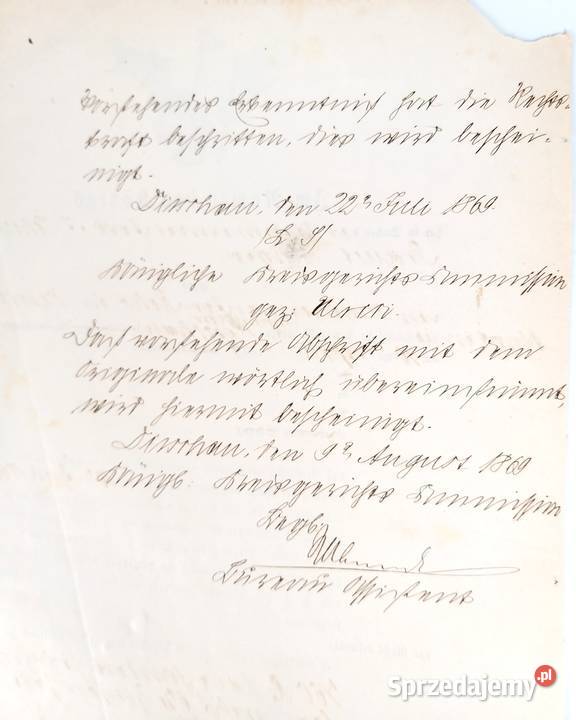 Vorstehendes Erkenntniß hat die Rechts-
kraft beschritten, dies wird beschei-
nigt.
Dirschau, den 22n Juli 1869.
/L S/
Königliche Kreisgerichts Commission
gez:
Daß vorstehende Abschrift mit dem
Originale wörtlich übereinstimmt,
wird hiermit bescheinigt.
Dirschau, den 9n August 1869
Königl: Kreisgerichts Commission
Bureau Assistent
Sprzedajemy.pl